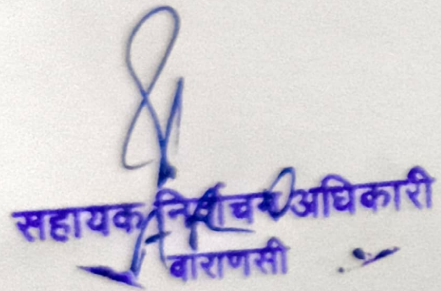 सहायक निर्वाचन अधिकारी
बाराणसी